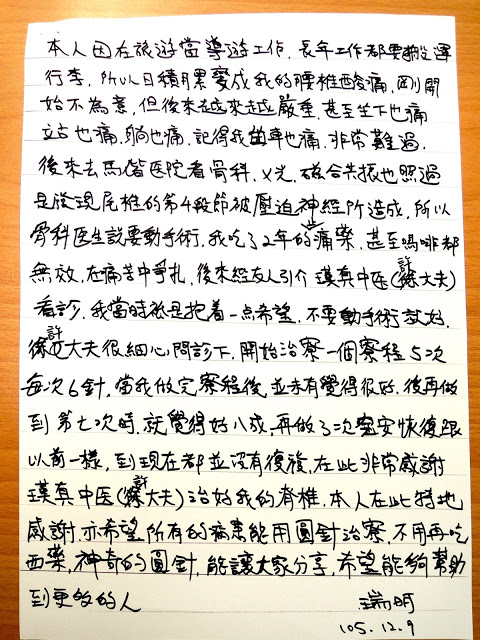 本人因在旅遊當導遊工作，長年工作都要搬運
行李，所以日積月累變成我的腰椎酸痛，剛開
始不為意，但後來越來越嚴重，甚至坐下也痛
站也痛，躺也痛，記得我曲車也痛，非常難過，
後來去馬偕医院看骨科，X光，磁合共振也照過
是發現尾椎的第4段節被壓迫神經所造成，所以
骨科医生說要動手術，我吃了2年的痛藥，甚至嗎啡都
無效，在痛苦中爭扎，後來經友人引介 瑾真中医(許大夫)
看診，我當時祇是抱着一点希望，不要動手術就好，
許大夫很細心問診下，開始治寮一個寮程5次
每次6針，當我做完寮程後，並未有覺得很好，後再做
到第七次時，就覺得好八成，再做了二次安恢復跟
以前一樣，到現在都並沒有復複，在此非常感謝
瑾真中医(許大夫)治好我的脊椎，本人在此特地
感謝，亦希望所有的病患能用圓針治寮，不用再吃
西藥，神奇的圓針，能讓大家分享，希望能夠幫助
到更多的人
瑞明
105.12.9